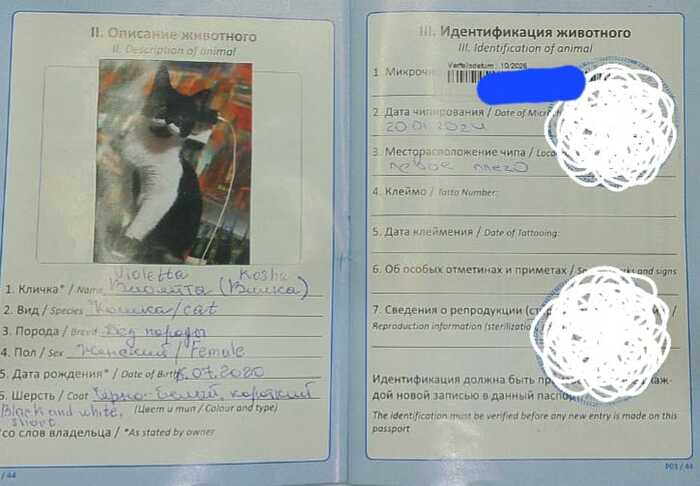 II. Описание животного
II. Description of animal
1. Кличка* / Name Violetta Kosha
Виолетта (Вилка)
2. Вид / Species Кошка/cat
3. Порода / Breed Без породы
4. Пол / Sex Женский / Female
5. Дата рождения* / Date of Birth .07.2020
6. Шерсть / Coat Черно-белый, короткий
Black and white, (Цвет и тип / Colour and type)
short
*со слов владельца / *As stated by owner
/ 44
III. Идентификация животного
III. Identification of animal
Verfallsdatum : 10/2026
1. Микрочи
2. Дата чипирования / Date of Microch
20.01.2024
3. Месторасположение чипа / Loca
левое плечо
4. Клеймо / Tatto Number:
5. Дата клеймения / Date of Tattooing:
6. Об особых отметинах и приметах / Sp ks and signs
7. Сведения о репродукции (стер /
Reproduction information (sterilizatio
Идентификация должна быть про каж-
дой новой записью в данный паспор
The identification must be verified before any new entry is made on this
passport
P03 / 44